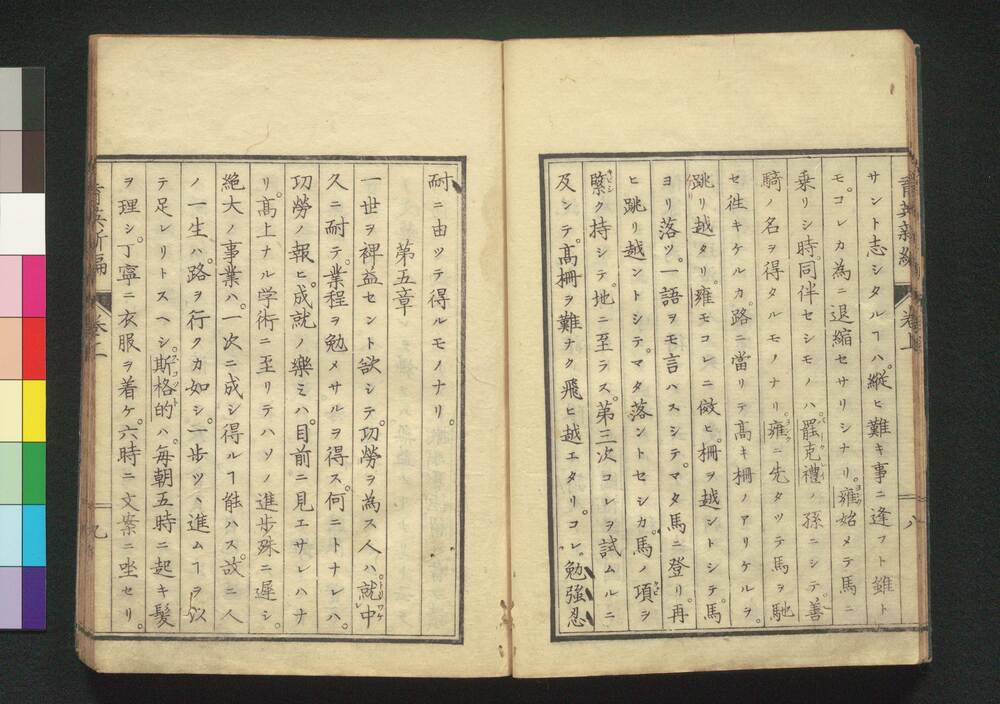 サント志シタルヿハ。縦ヒ難キ事ニ逢フト雖ト
モ。コレカ為ニ退縮セサリシナリ。雍始メテ馬ニ
乗リシ時。同伴セシモノハ罷克禮ノ孫ニシテ。善
騎ノ名ヲ得タルモノナリ。雍ニ先タツテ馬ヲ馳
セ徃キケルカ。路ニ當リテ高キ柵ノアリケルヲ。
跳リ越タリ。雍モコレニ傚ヒ。柵ヲ越ントシテ。馬
ヨリ落ツ。一語ヲモ言ハスシテ。マタ馬ニ登リ。再
ヒ跳リ越ントシテ。マタ落ントセシカ。馬ノ項ヲ
緊ク持シテ。地ニ至ラス。第三次コレヲ試ムルニ
及ンテ。高柵ヲ難ナク飛ヒ越エタリ。コレ勉強忍
八
耐ニ由ツテ得ルモノナリ。
第五章
一世ヲ裨益セント欲シテ。功勞ヲ為ス人ハ。就中
久ニ耐テ。業程ヲ勉メサルヲ得ス。何ニトナレハ。
功勞ノ報ヒ。成就ノ樂ミハ。目前ニ見エサレハナ
リ。高上ナル学術ニ至リテハ。ソノ進歩殊ニ遲シ。
絶大ノ事業ハ。一次ニ成シ得ルヿ能ハス。故ニ人
ノ一生ハ。路ヲ行クカ如シ。一歩ツヽ進ムヿヲ以
テ足レリトスヘシ。斯格的ハ。毎朝五時ニ起キ髪
ヲ理シ。丁寧ニ衣服ヲ着ケ。六時ニ文案ニ坐セリ。
九